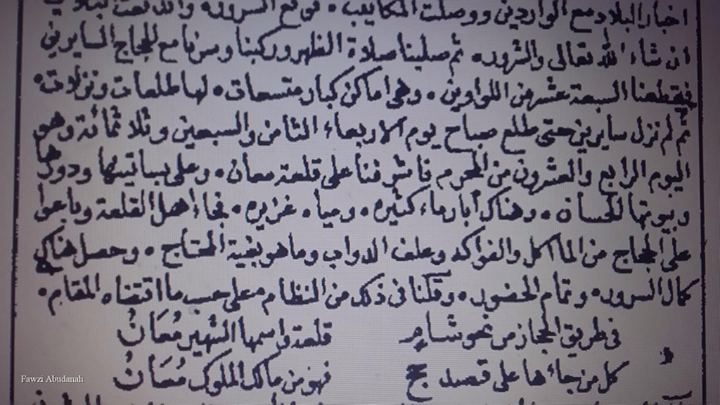 اخبار البلاد مع الواردين ووصلت المكاتيب
ان شاء الله تعالى والشهود، ثم صلينا صلاة الظهر وركبنا وسرنا مع الحجاج السايرين
فقطعنا السبعة عشر من اللواوين، وهي اماكن كبار متسعات، لها طلعات ونزلات،
ثم لم نزل سايرين حتى طلع صباح يوم الاربعاء الثامن والسبعين وثلاثمائة وهو
اليوم الرابع والعشرون من المحرم فاشرفنا على قلعة معان، وعلى بساتينها ودورها
وبيوتها الحسان، وهناك أبار ماء كثيره، ومياه غزيره، فجاء اهل القلعة وباعوا
على الحجاج من المآكل والفواكه وعلف الدواب وما هو بغية المحتاج، وحصل هناك
كمال السرور، وتمام الحضور، وقلنا في ذلك من النظام، على حسب ما اقتضاه المقام،
في طريق الحجاز من نحو شام قلعة واسمها الشهير مُعَانُ
كل من جاءها على قصد حج فهو من مالك الملوك مُعَانُ
Fawzi Abudanah